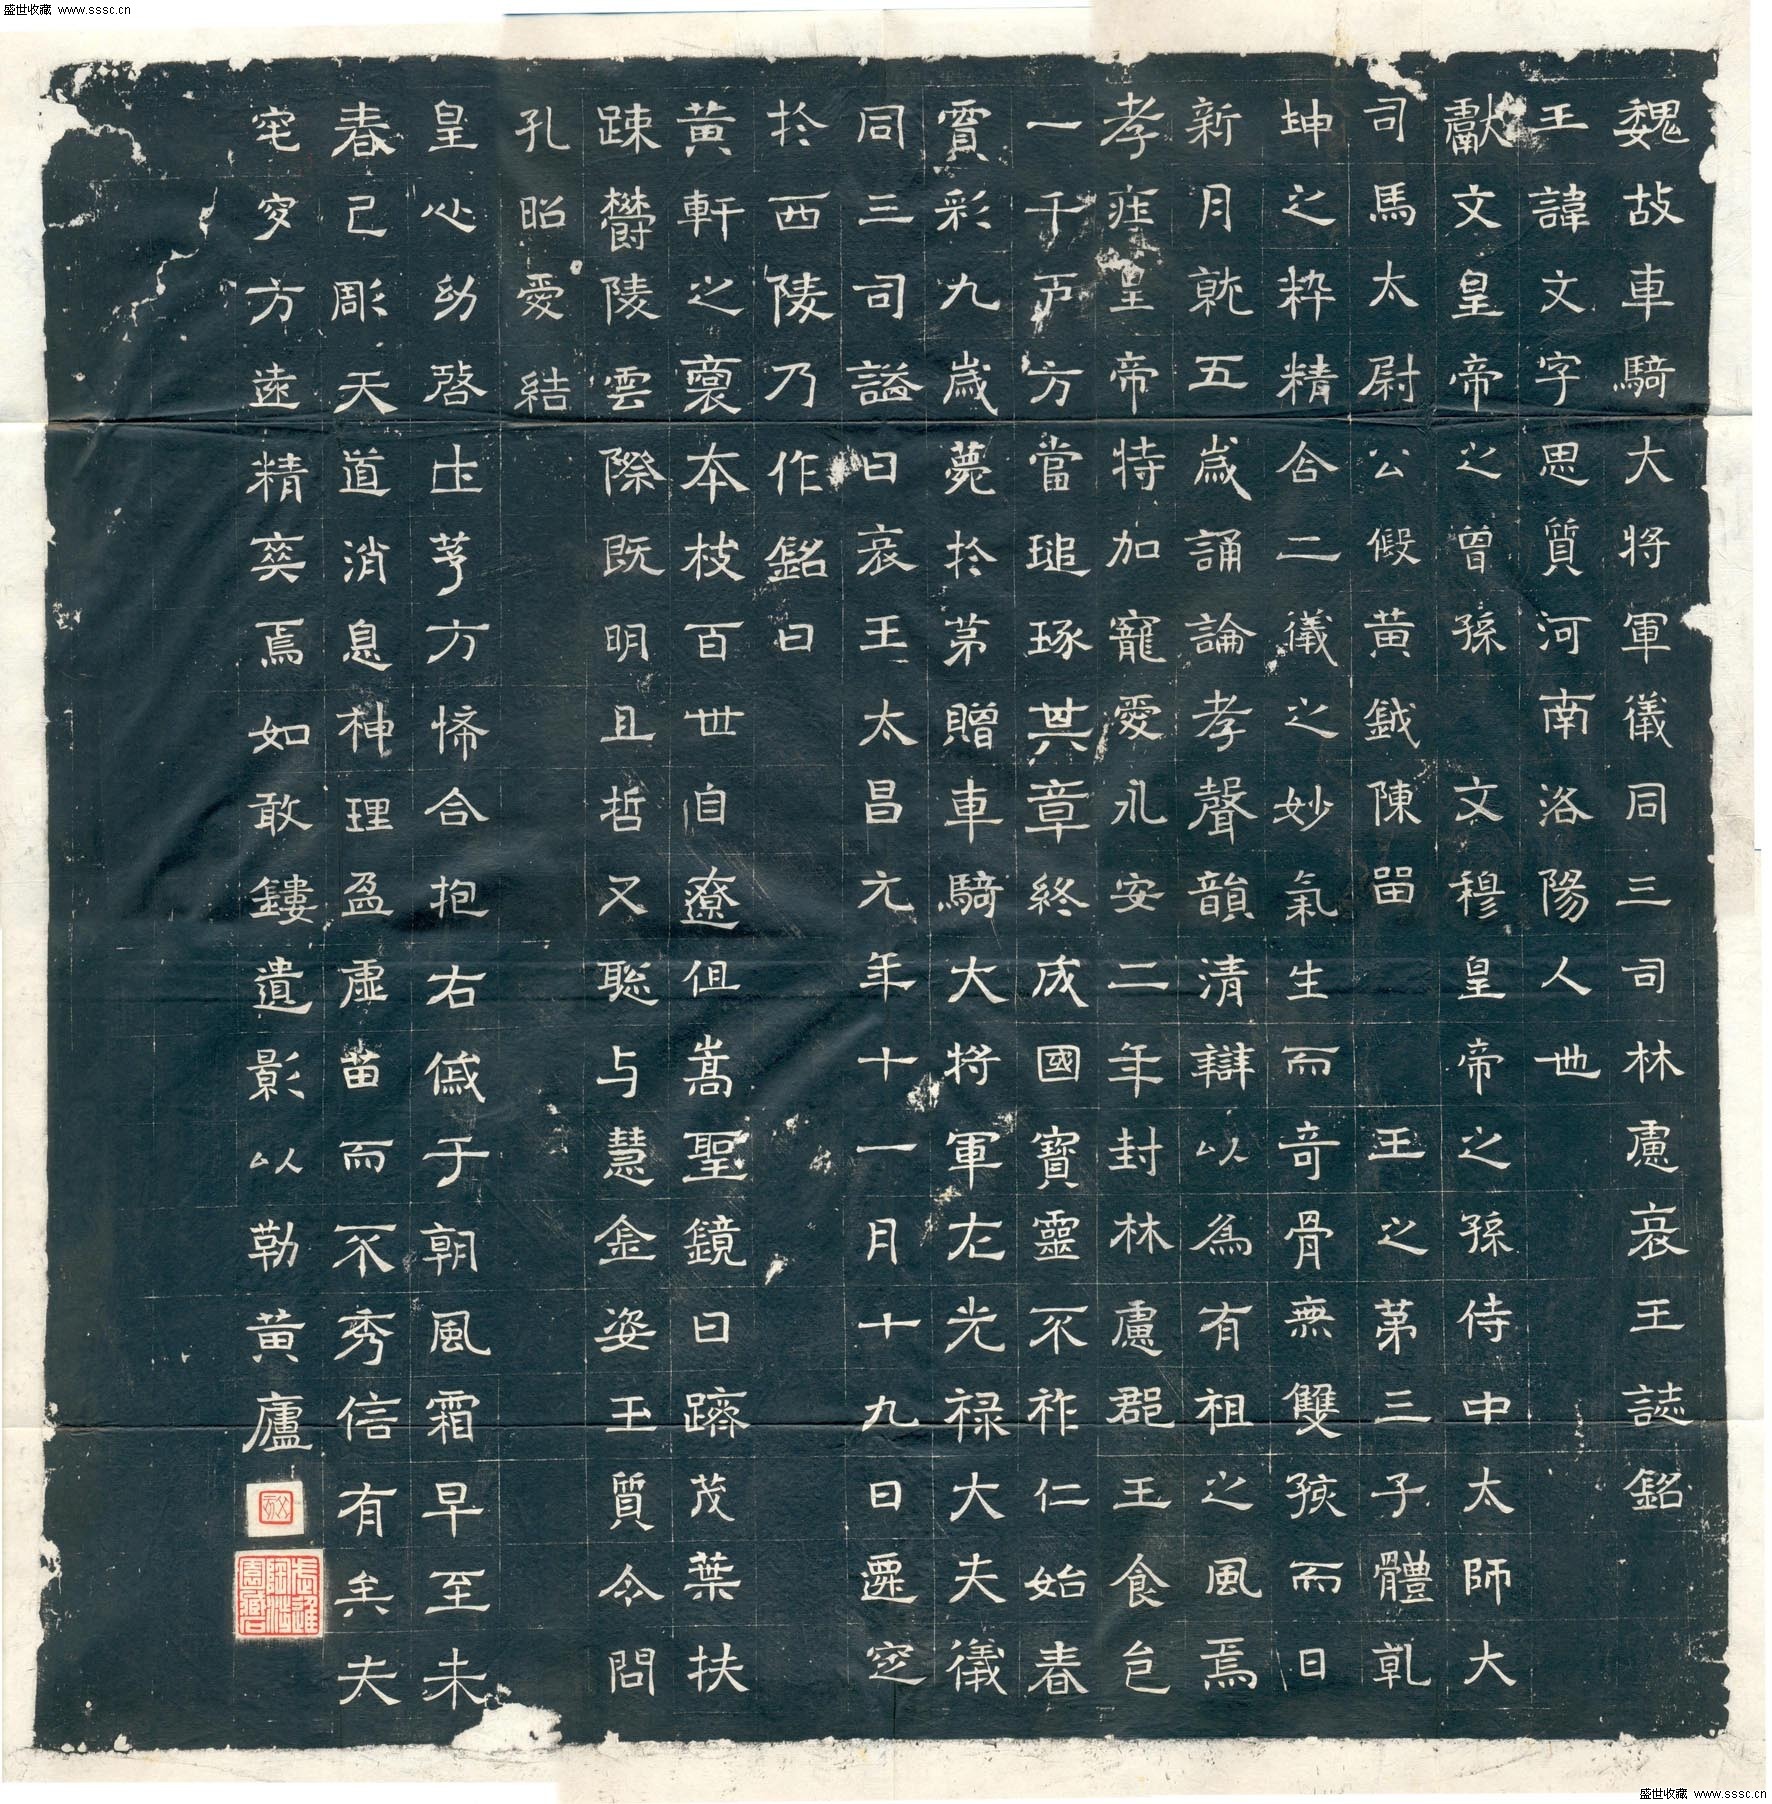 盛世收藏 www.sssc.cn
魏故車騎大將軍儀同三司林慮哀王誌銘
王諱文字思質河南洛陽人也
獻文皇帝之曾孫 文穆皇帝之孫侍中太師大
司馬太尉公假黃鉞陳留 王之第三子體乹
坤之粹精合二儀之妙氣生而奇骨無雙孩而日
新月就五歲誦論孝聲韻清辯以為有祖之風焉
孝莊皇帝特加寵愛永安二年封林慮郡王食邑
一千戶方當琢其章終成國寶靈不祚仁始春
霣彩九歲薨於第贈車騎大將軍左光祿大夫儀
同三司諡曰哀王太昌元年十一月十九日遷窆
於西陵乃作銘曰
黃軒之裔本枝百世自遼徂嵩聖鏡日躋茂葉扶
踈欝陵雲際既明且哲又聡与慧金姿玉質令問
孔昭愛結
皇心幼啓土茅方悕合抱右戚于朝風霜早至未
春已彫天道消息神理盈虛苗而不秀信有矣夫
窀穸方遠精奕焉如敢鏤遺影以勒黃廬
盛世收藏 www.sssc.cn